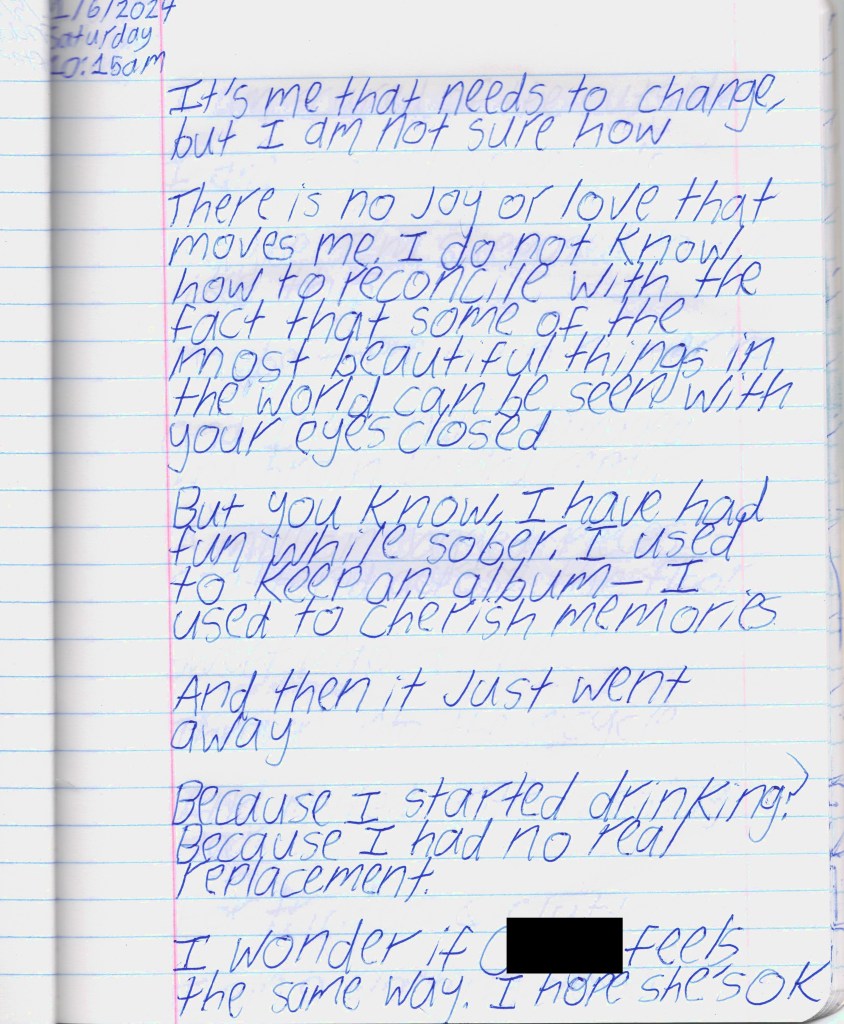 1/6/2024
Saturday
10:15am
It's me that needs to change,
but I am not sure how
There is no joy or love that
moves me. I do not know
how to reconcile with the
fact that some of the
most beautiful things in
the world can be seen with
your eyes closed
But you know, I have had
fun while sober. I used
to keep an album— I
used to cherish memories
And then it just went
away
Because I started drinking?
Because I had no real
replacement.
I wonder if feels
the same way. I hope she's OK